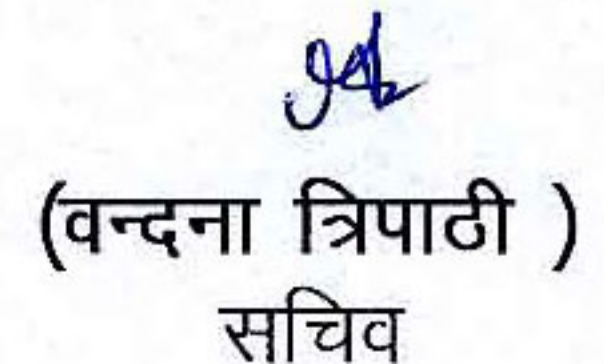 (वन्दना त्रिपाठी )
सचिव